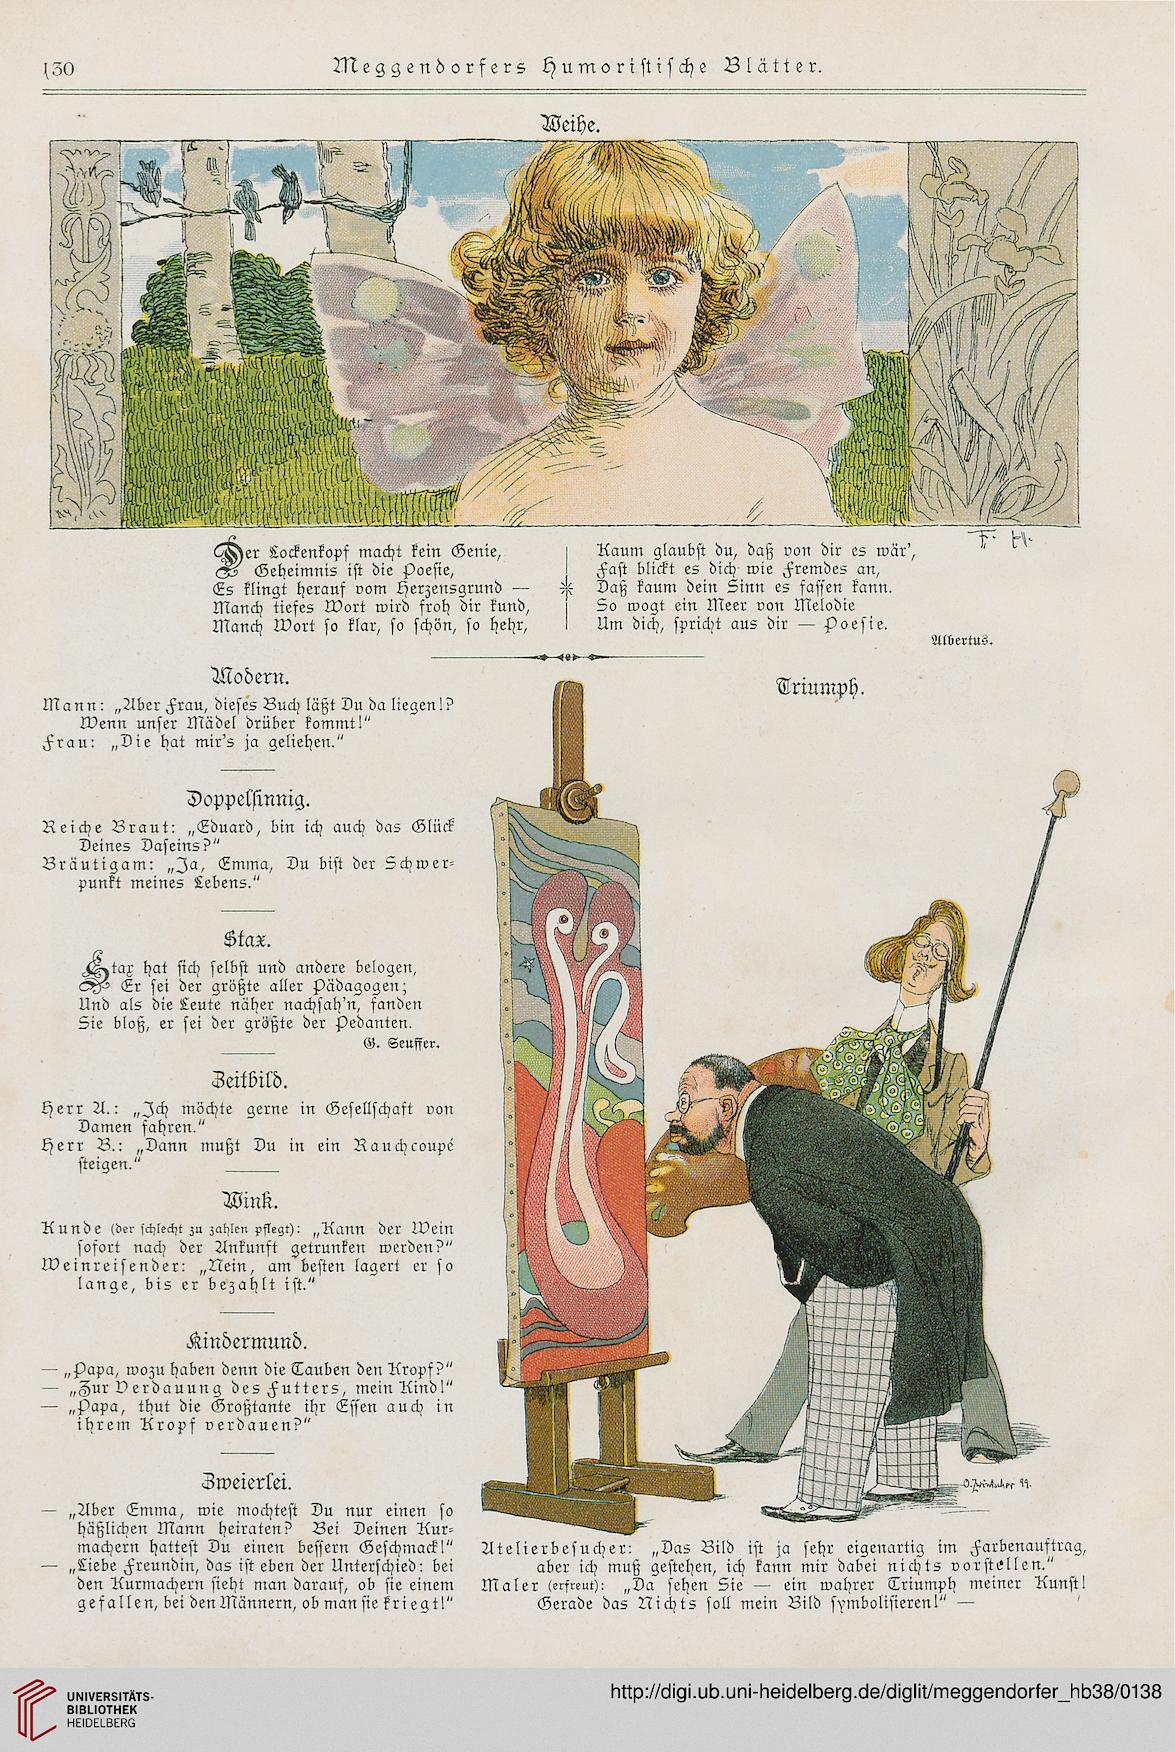 130
Meggendorfers Humoristische Blätter.
Weihe.
F. H.
Der Lockenkopf macht kein Genie,
Geheimnis ist die Poesie,
Es klingt herauf vom Herzensgrund —
Manch tiefes Wort wird froh dir kund,
Manch Wort so klar, so schön, so hehr,
Kaum glaubst du, daß von dir es wär',
Fast blickt es dich wie Fremdes an,
Daß kaum dein Sinn es fassen kann.
So wogt ein Meer von Melodie
Um dich, spricht aus dir — Poesie.
Albertus.
Modern.
Mann: „Aber Frau, dieses Buch läßt Du da liegen!?
Wenn unser Mädel drüber kommt!"
Frau: „Die hat mir's ja geliehen."
Doppelsinnig.
Reiche Braut: „Eduard, bin ich auch das Glück
Deines Daseins?"
Bräutigam: „Ja, Emma, Du bist der Schwer-
punkt meines Lebens."
Stax.
Stax hat sich selbst und andere belogen,
Er sei der größte aller Pädagogen;
Und als die Leute näher nachsah'n, fanden
Sie bloß, er sei der größte der Pedanten.
G. Seuffer.
Zeitbild.
Herr A.: „Ich möchte gerne in Gesellschaft von
Damen fahren."
Herr B.: „Dann mußt Du in ein Rauchcoupé
steigen."
Wink.
Kunde (der schlecht zu zahlen pflegt): „Kann der Wein
sofort nach der Ankunft getrunken werden?"
Weinreisender: „Nein, am besten lagert er so
lange, bis er bezahlt ist."
Kindermund.
— „Papa, wozu haben denn die Tauben den Kropf?"
— „Zur Verdauung des Futters, mein Kind!"
— „Papa, thut die Großtante ihr Essen auch in
ihrem Kropf verdauen?"
Zweierlei.
— „Aber Emma, wie mochtest Du nur einen so
häßlichen Mann heiraten? Bei Deinen Kur-
machern hattest Du einen bessern Geschmack!"
— „Liebe Freundin, das ist eben der Unterschied: bei
den Kurmachern sieht man darauf, ob sie einem
gefallen, bei den Männern, ob man sie kriegt!"
Triumph.
99.
Atelierbesucher: „Das Bild ist ja sehr eigenartig im Farbenauftrag,
aber ich muß gestehen, ich kann mir dabei nichts vorstellen."
Maler (erfreut): „Da sehen Sie — ein wahrer Triumph meiner Kunst!
Gerade das Nichts soll mein Bild symbolisieren!" —
UNIVERSITÄTS-
BIBLIOTHEK
HEIDELBERG
http://digi.ub.uni-heidelberg.de/diglit/meggendorfer_hb38/0138